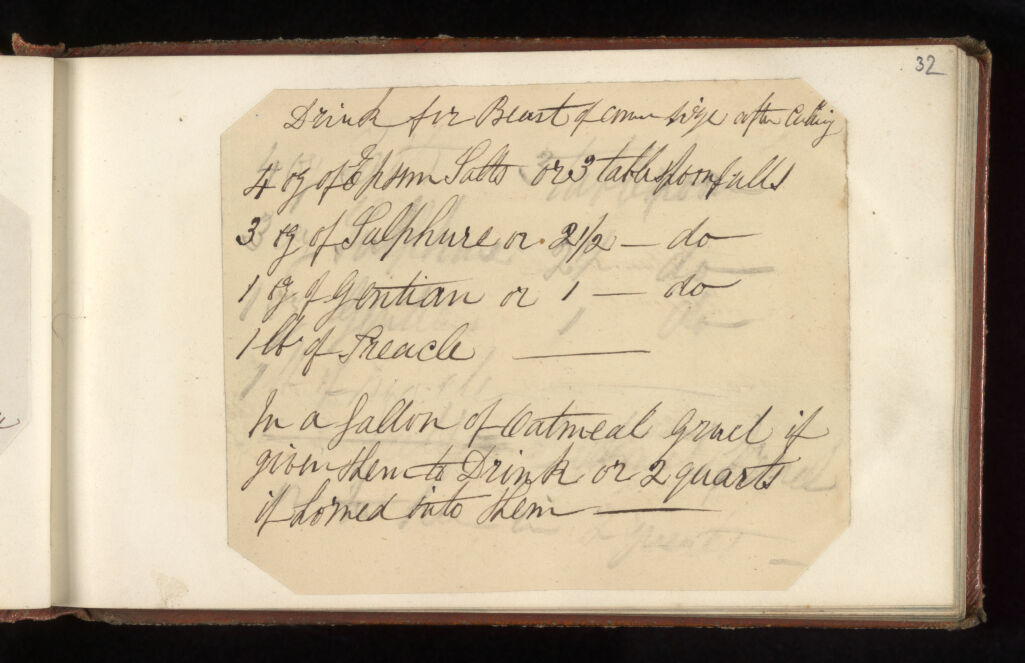 32
Drink for Beast of comn size after Calving
4 oz of Epsom Salts or 3 tablespoonfulls
3 oz of Sulphure or 2 1/2 — do —
1 oz of Gentian or 1 — do
1 lb of Treacle —
In a Gallon of Oatmeal Gruel if
given them to Drink or 2 quarts
if horned into them —